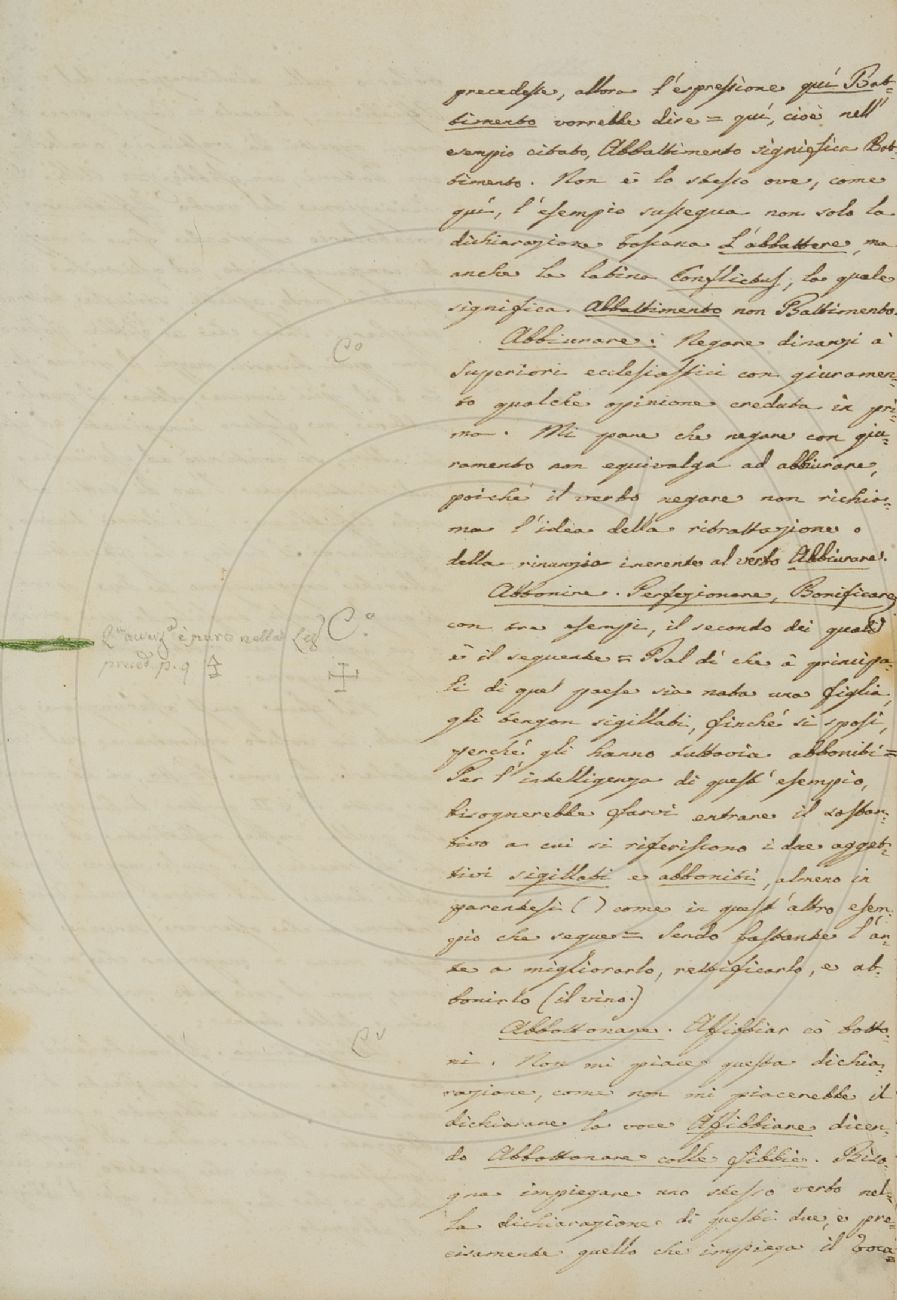 precedesse, allora l'espressione quí Bat-
timento vorrebbe dire = quí, cioè nell'
esempio citato, Abbattimento significa Bat-
timento. Non è lo stesso ove, come
quí, l'esempio sussegua non solo la
dichiarazione toscana L'abbattere, ma
anche la latina Conflictus, la quale
significa Abbattimento non Battimento.
Abbiurare: Negare dinanzi à
Superiori ecclesiastici con giuramen-
to qualche opinione creduta in pri-
ma. Mi pare che negare con giu-
ramento non equivalga ad abbiurare,
poiché il verbo negare non richia-
ma l'idea della ritrattazione o
della rinunzia inerente al verbo Abbiurare.
Abbonire. Perfezionare, Bonificare,
con tre esempi, il secondo dei quali
è il seguente = Bal dí che à principa-
li di quel paese sia nata una figlia,
gli tengon sigillati, finché si sposi,
perché gli hanno tuttavia abboniti =
Per l'intelligenza di quest'esempio,
bisognerebbe farvi entrare il sostan-
tivo a cui si riferiscono i due agget-
tivi sigillati e abboniti, almeno in
parentesi () come in quest'altro esem-
pio che segue = Sendo bastante l'ar-
te a migliorarlo, rettificarlo, e ab-
bonirlo (il vino.)
Abbottonare. Affibbiar cò botto-
ni. Non mi piace questa dichia-
razione, come non mi piacerebbe il
dichiarare la voce Affibbiare dicen-
do Abbottonare colle fibbie. Biso-
gna impiegare uno stesso verbo nel-
la dichiarazione di questi due, e pre-
cisamente quello che impiega il Voca-
Cº
Cº
è pure nella
p. 9